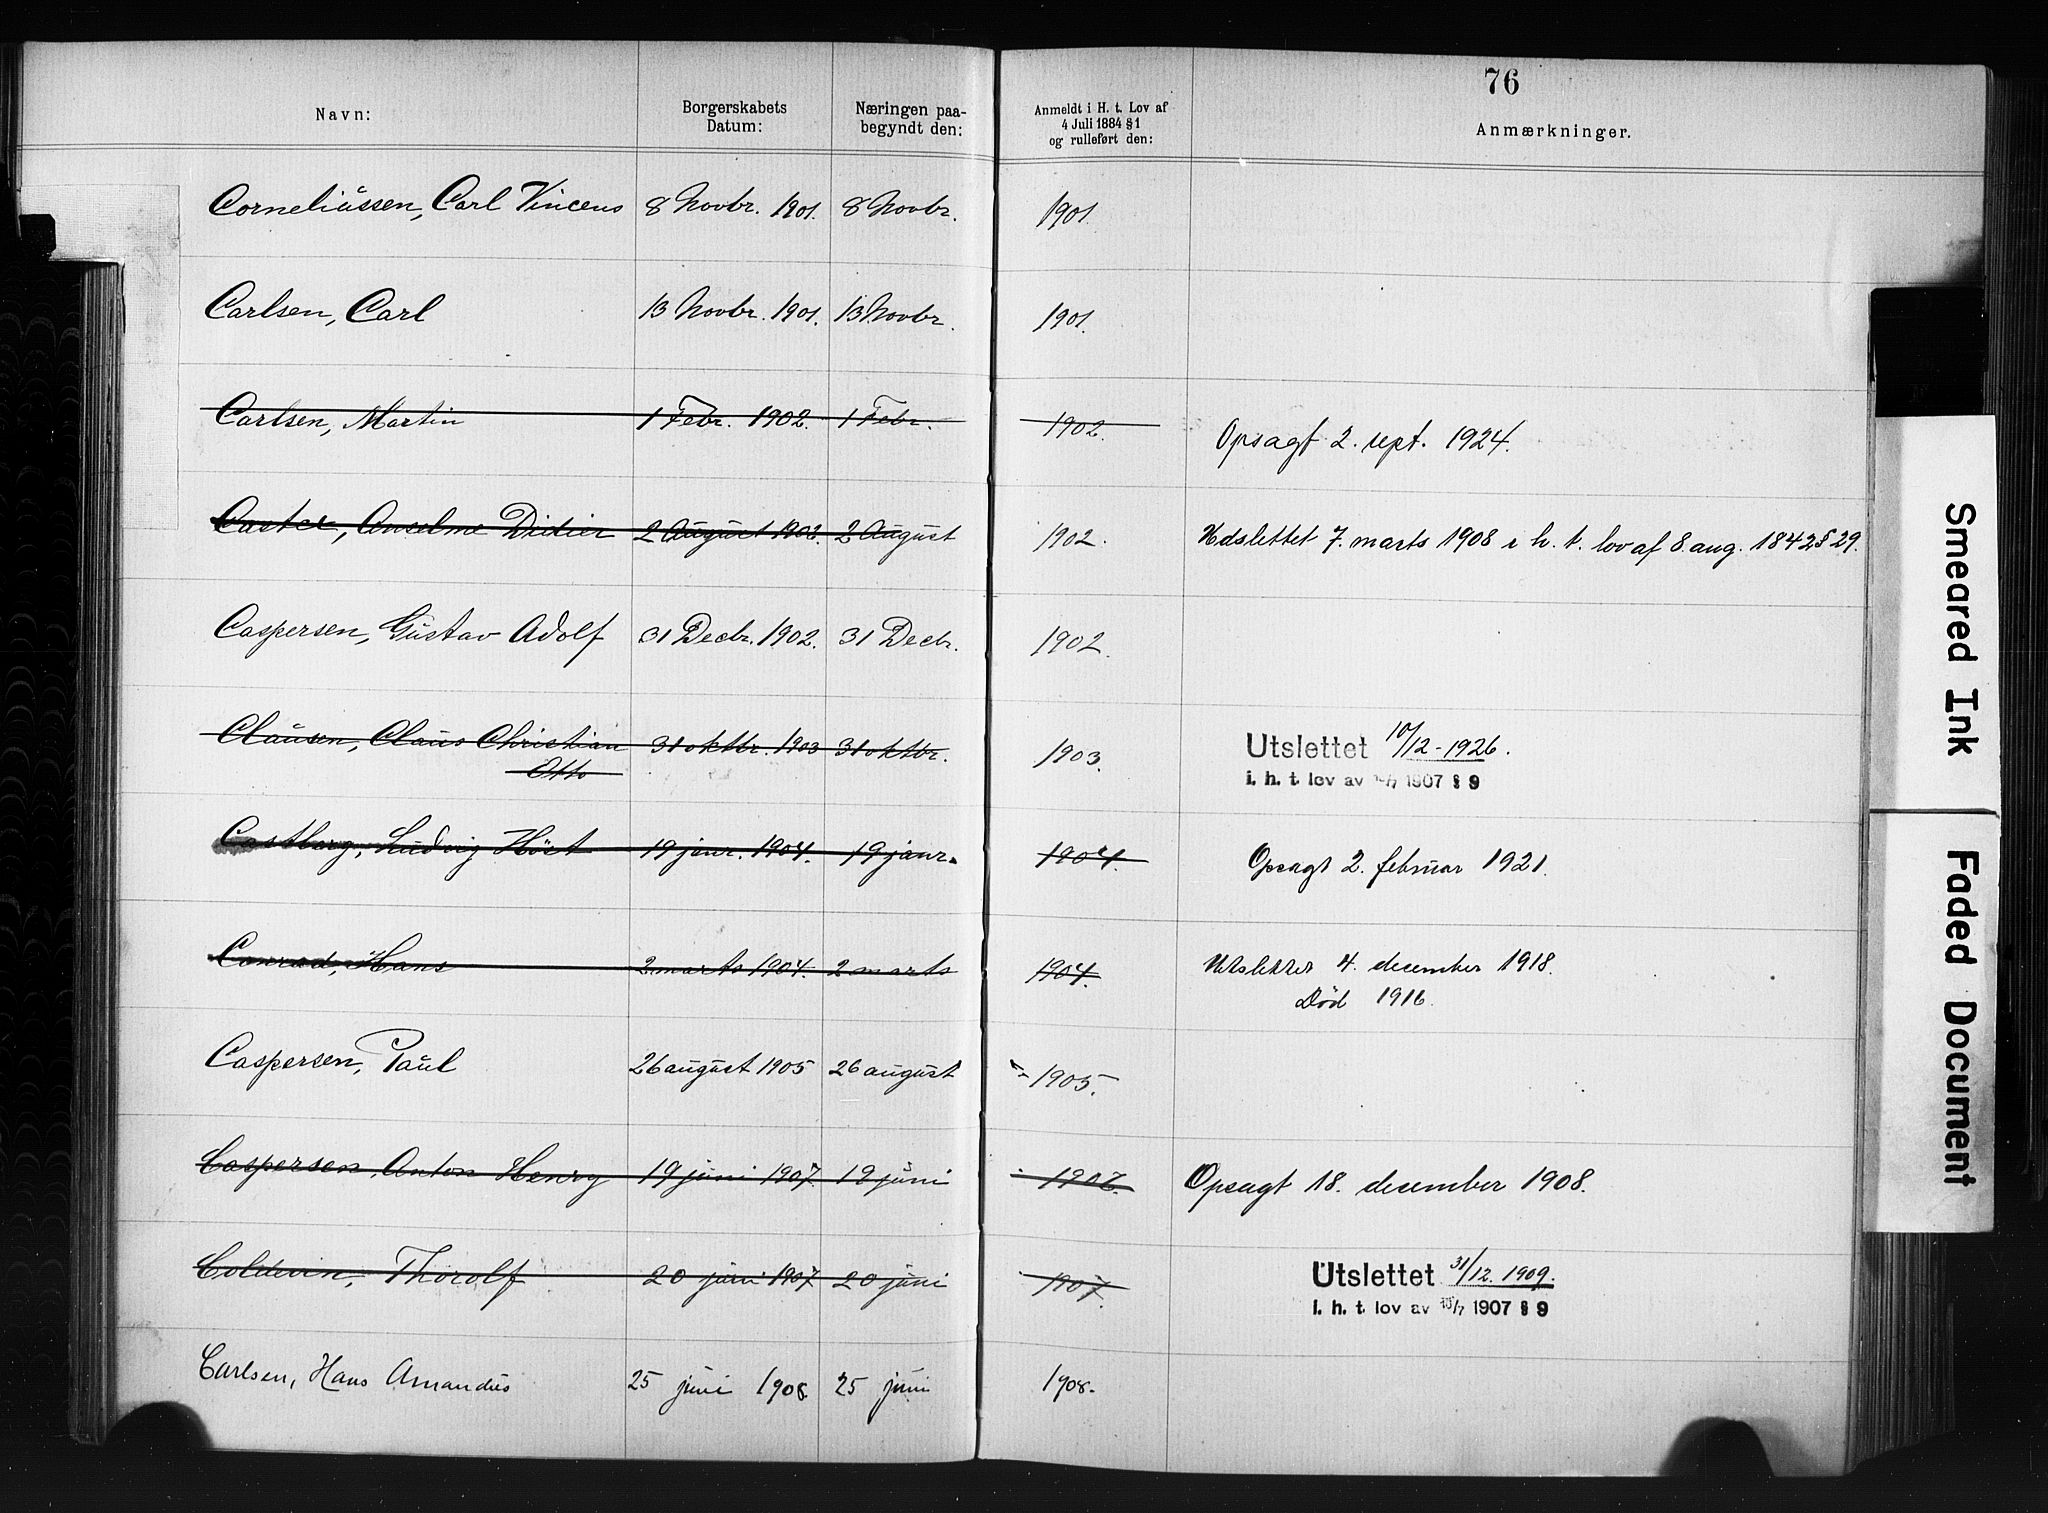 76
Navn:
Borgerskabets Datum:
Næringen paabegyndt den:
Anmeldt i H. t. Lov af 4 Juli 1884 § 1 og rulleført den:
Anmærkninger.
Corneliussen, Carl Vincens 8 Novbr. 1901. 8 Novbr. 1901.
Carlsen, Carl 13 Novbr. 1901. 13 Novbr. 1901.
Carlsen, Martin 1 Febr. 1902. 1 Febr. 1902. Opsagt 2. sept. 1924.
Caster, Anselme Didier 2 August 1902. 2 August 1902. Udslettet 7. marts 1908 i h. t. lov af 8. aug. 1842 § 29.
Caspersen, Gustav Adolf 31 Decbr. 1902. 31 Decbr. 1902.
Clausen, Claus Christian 31 oktbr. 1903 31 oktbr. 1903. Utslettet 10/12-1926.
Otto i. h. t. lov av 1907 § 9
Castberg, Ludvig Höst 19 janr. 1904. 19 janr. 1904. Opsagt 2. februar 1921.
Conrad, Hans 2 marts 1904. 2 marts 1904. Utslettet 4. december 1918.
Död 1916.
Caspersen, Paul 26 august 1905 26 august 1905.
Caspersen, Anton Henry 19 juni 1907. 19 juni 1907. Opsagt 18. december 1908.
Coldevin, Thorolf 20 juni 1907 20 juni 1907. Utslettet 31/12. 1909.
i. h. t. lov av 15/7 1907 § 9
Carlsen, Hans Amandus 25 juni 1908 25 juni 1908.
Smeared Ink
Faded Document